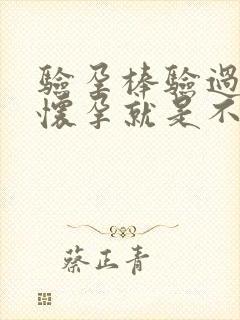 驗孕棒驗過
懷孕就是不
蔡正青